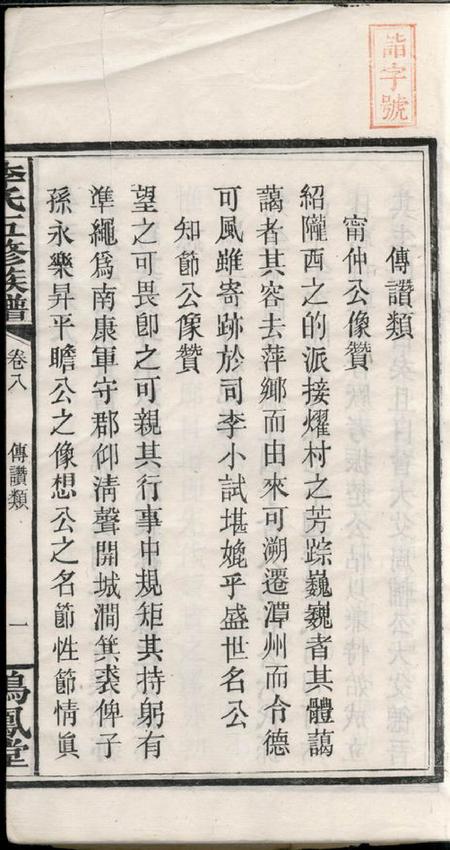 誥字號
傳讚類
甯仲公像贊
紹隴西之的派接燿村之芳踪巍巍者其體藹
藹者其容去萍鄉而由來可溯遷潭州而令德
可風雖寄跡於司李小試堪媲乎盛世名公
知節公像贊
望之可畏卽之可親其行事中規矩其持躬有
準繩爲南康軍守郡仰淸聲開城澗箕裘俾子
孫永樂昇平瞻公之像想公之名節性節情眞
李氏五修族譜
卷八
傳讚類
一
鳴鳳堂